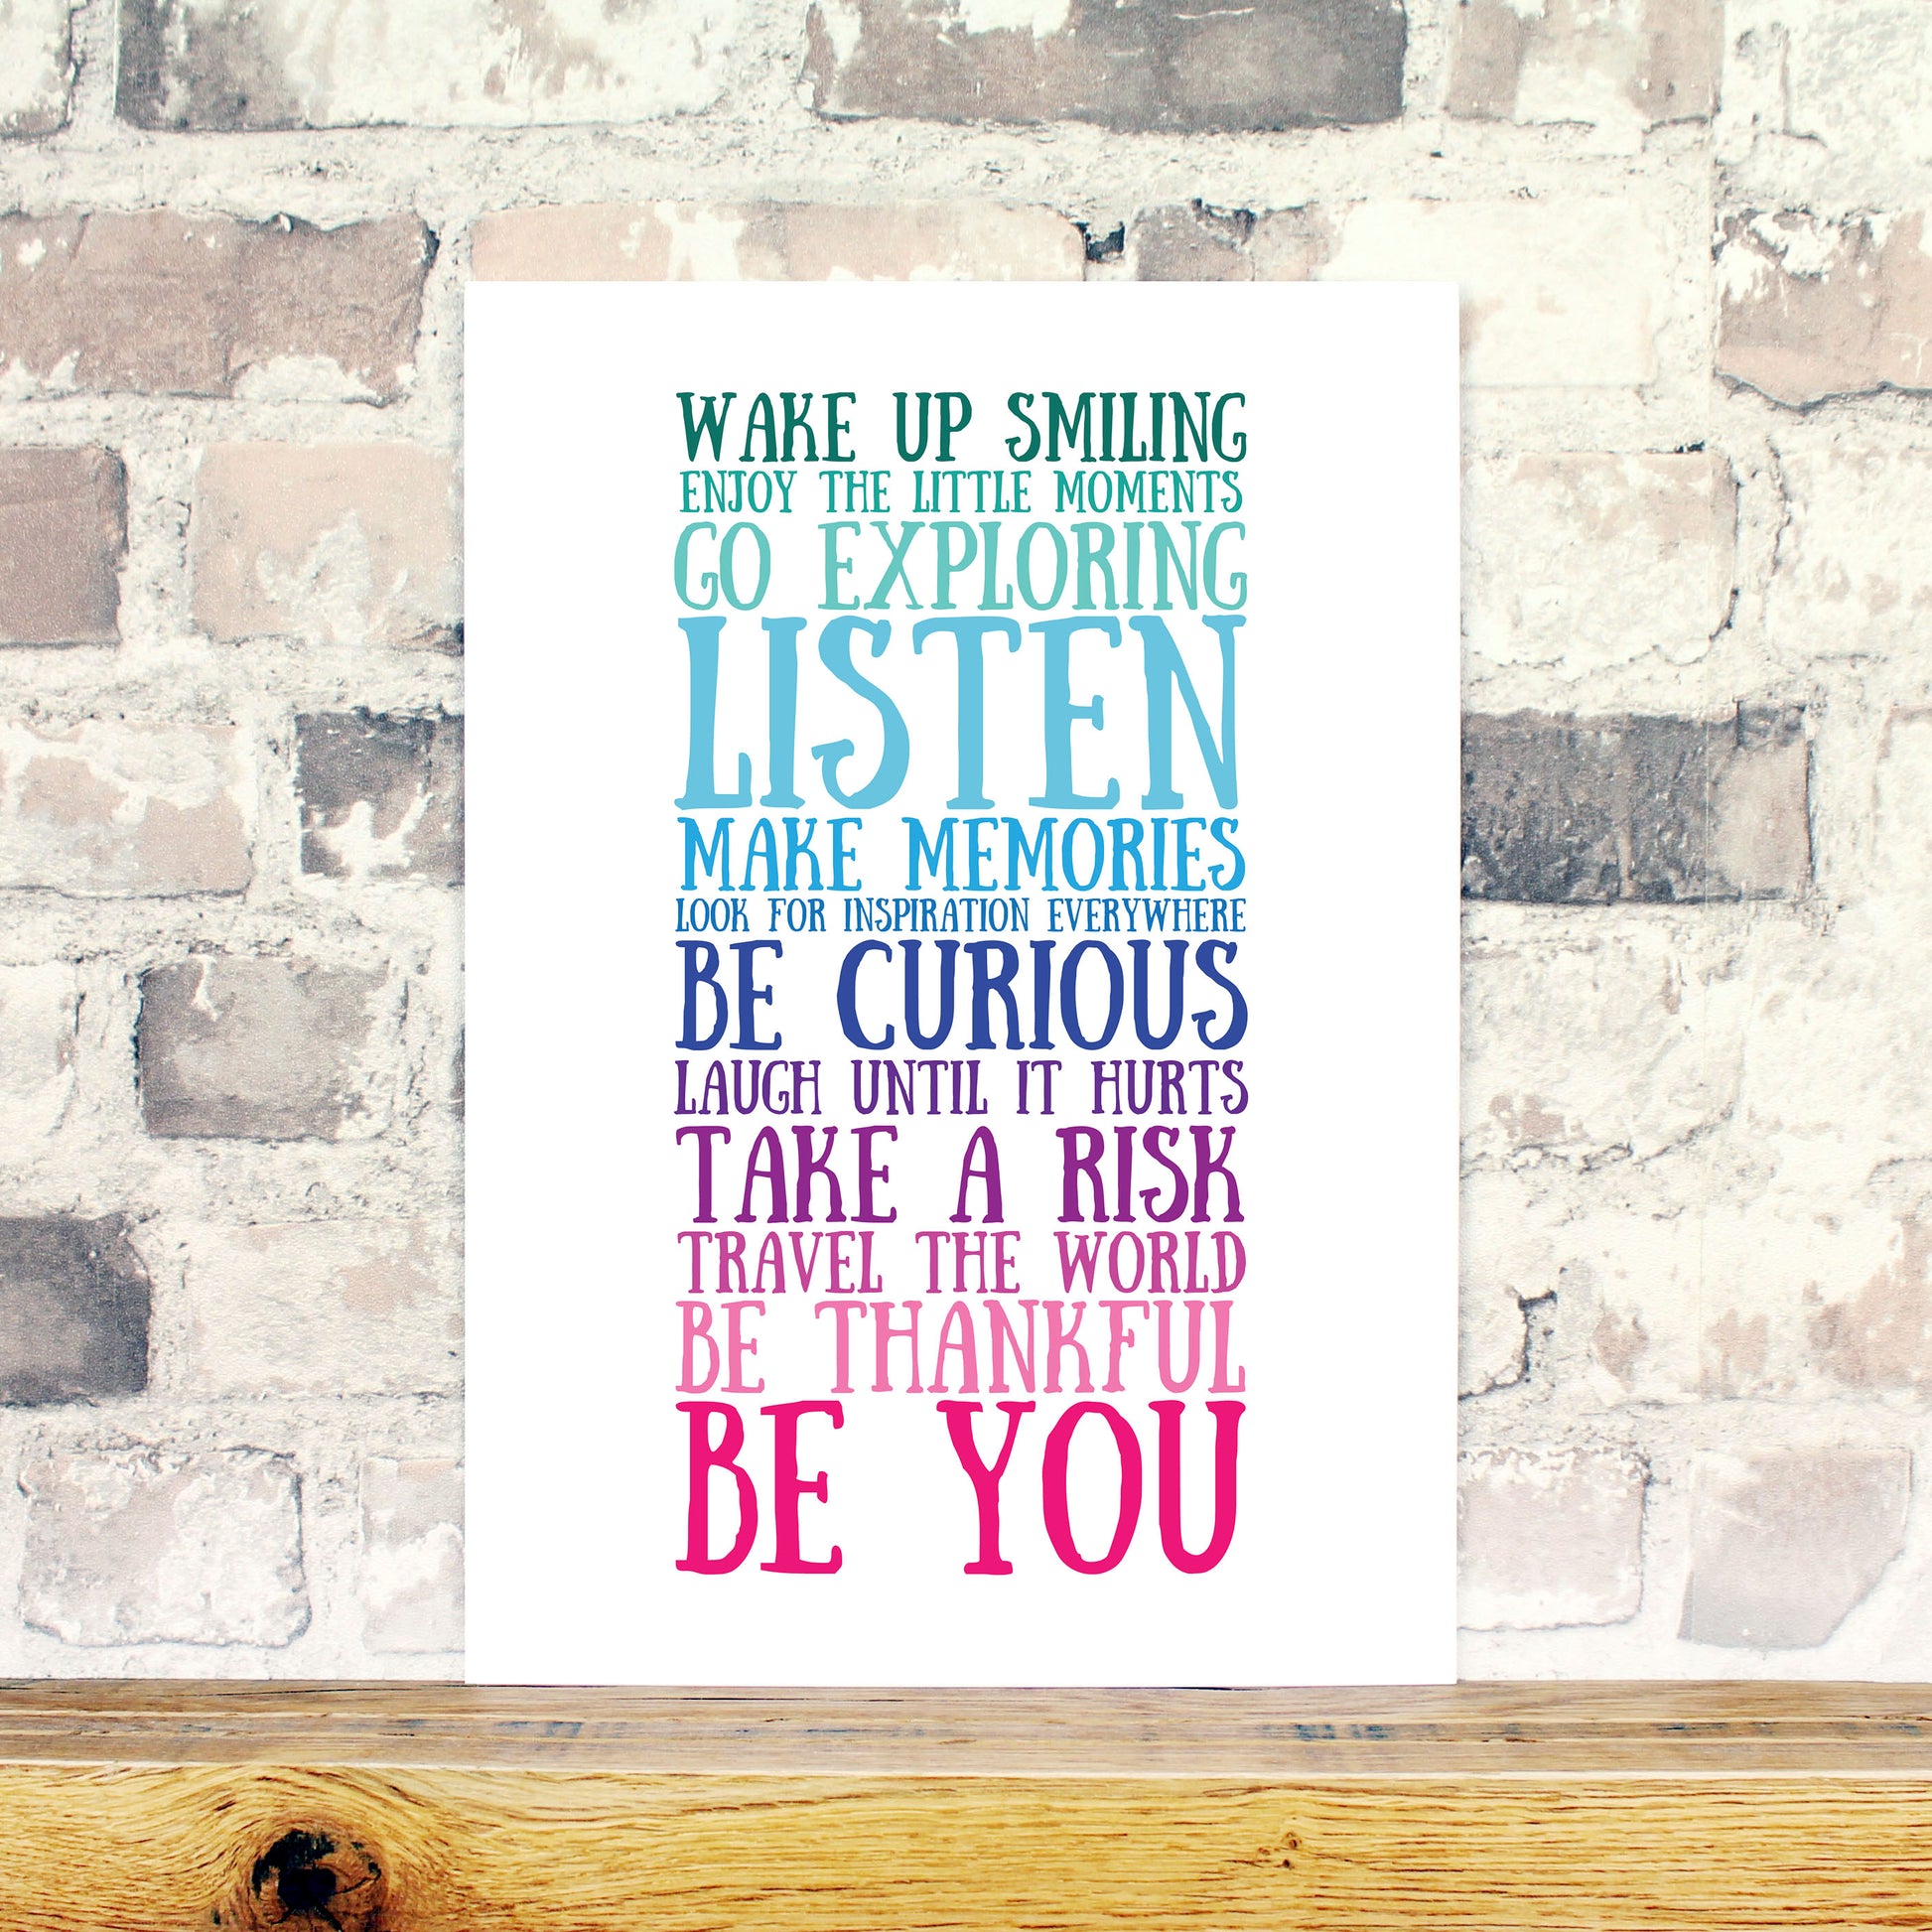 WAKE UP SMILING
ENJOY THE LITTLE MOMENTS
GO EXPLORING
LISTEN
MAKE MEMORIES
LOOK FOR INSPIRATION EVERYWHERE
BE CURIOUS
LAUGH UNTIL IT HURTS
TAKE A RISK
TRAVEL THE WORLD
BE THANKFUL
BE YOU